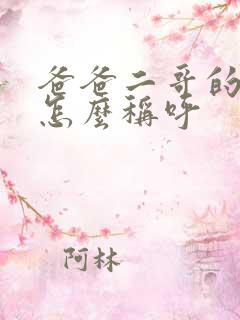 爸爸二哥的
怎麼稱呼
阿林